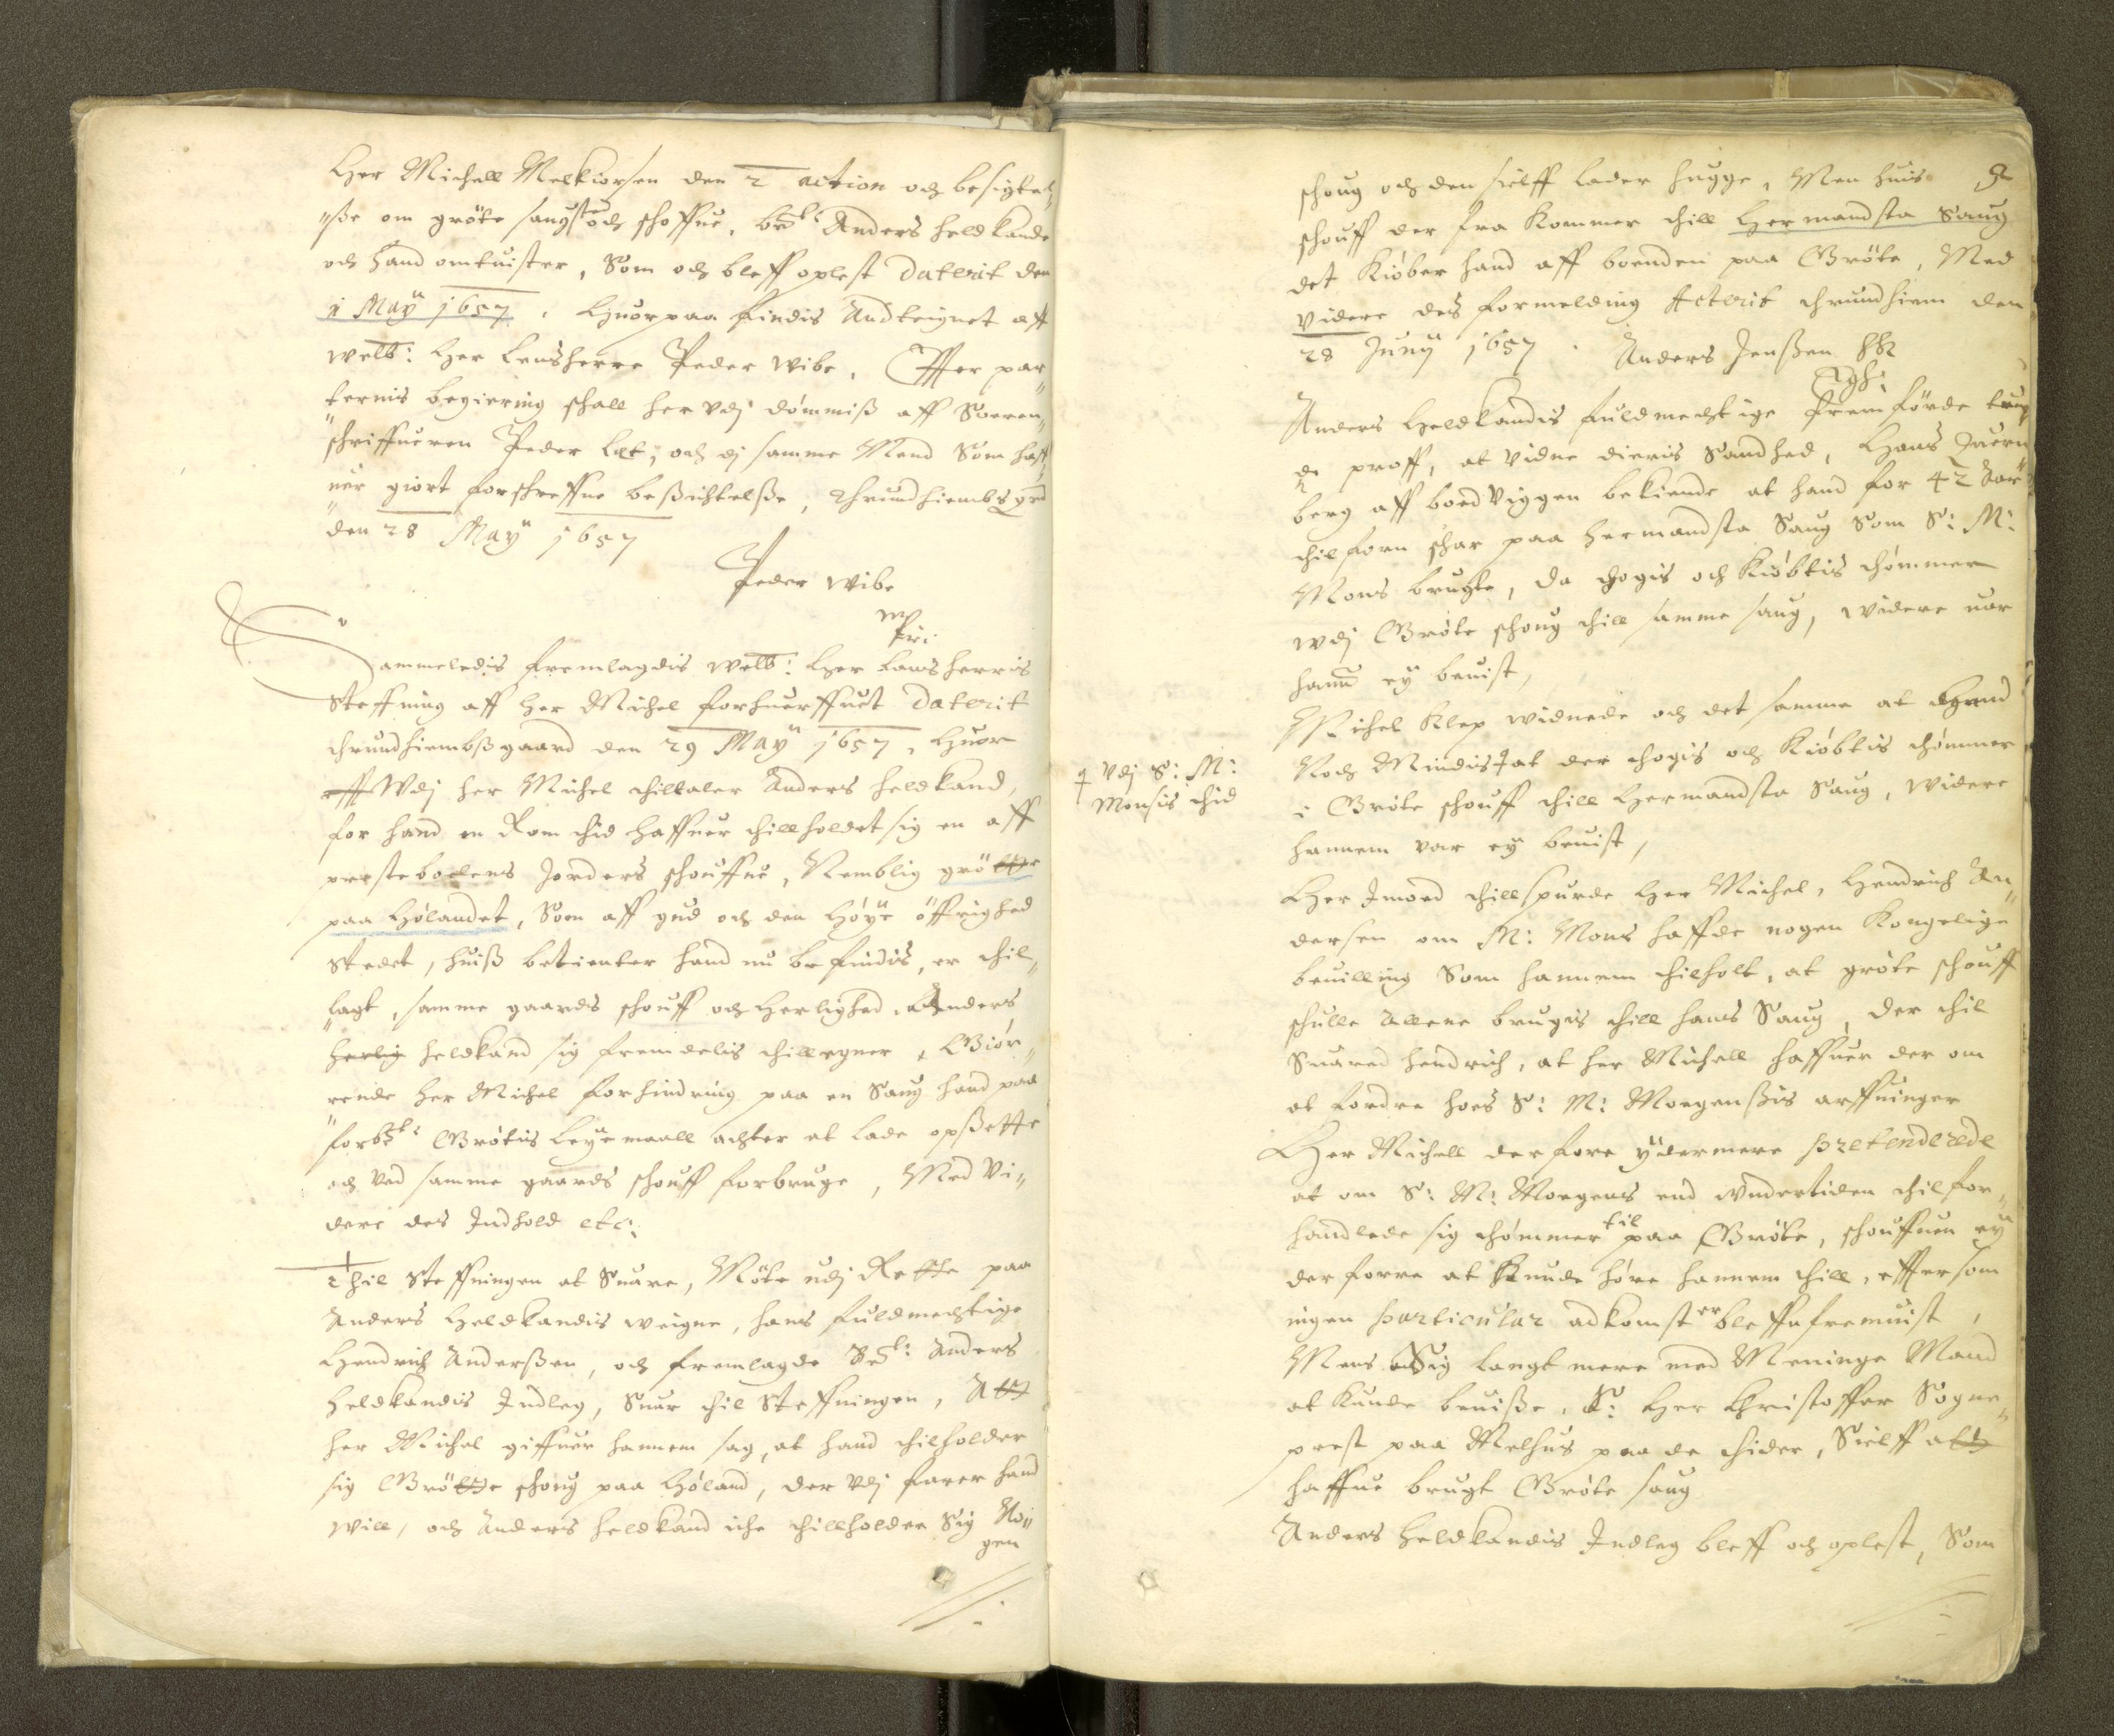 Her Michell Melkiorsen den 2 action och besigtel„
„ße om gröte saugsted och schoffue, bete Anders Heldkande
och hand omtuister, Som och bleff oplest Daterit den
1 May 1657, Huorpaa findis Andteignet aff
welb: Her Lensherre Peder Wibe, Effter par„
„ternis begiering schall her vdj dömmiß aff Soeren„
„schriffueren Peder Let, och dj samme Mend Som haff„
„uer giort forschreffne beßichtelße, Thrundhiembs grd
den 28 May 1657
Peder Wibe
mp
Sammeledis fremlagdis welb: Her Lensherris
Steffning aff Her Michel forhuerffuet Daterit
thrundhiembßgaard den 29 May 1657, Huor
Wdj her Michel thilltaler Anders Heldkand,
for hand en Rom thid haffuer thillholdet sig en aff
prestebolens Jorders schouffue, Nemblig grötte
paa Hölandet, Som aff gud och den Höye öffrighed
Stedet, huiß betienter hand nu befindis, er thil„
„lagt, samme gaards schouff och Herlighed, Anders
Heldkand sig fremdelis thillegner, Giör„
„rende her Michel forhindring paa en Saug hand paa
forbete Grötis Leyemaall achter at lade opßette
och ved samme gaards schouff forbruge, Med Vi„
dere des Indhold etc:
Thil Steffningen at Suare, Möte udj Rette paa
Anders Heldkandis weigne, hans fuldmechtige
Hendrich Anderßen, och fremlagde Anders
Heldkandis Indleg, Suar thil Steffningen, Att
her Michel giffuer hannem sag, at hand thilholder
sig Grötte schoug paa Höland, der vdj farer hand
will, och Anders Heldkand iche thillholder Sig No„
gen
schoug och den sielff lader hugge, Men huis
schouff der fra Kommer thill Hermandsta Saug
det Kiöber hand aff bonden paa Gröte, Med
Videre des formelding Acterit thrundhiem den
28 Juny 1657. Anders Jenßen
Anders Heldkandis fuldmechtige fremförde tuen„
de proff, at vidne dieris Sandhed, Hans
berg aff boedViggen bekiende at hand for 42 Aar
thilforn schar paa Hermandsta Saug Som S: M:
Mons brugte, da thogis och Kiöbtis thömmer
wdj Gröte schoug thill samme saug, widere uar
hannem ey beuist,
Michel Klep widnede och det samme at Hand
Noch Mindis at der thogis och Kiöbtis thömmer
ⱡ vdj S: M:
Monsis thid
i Gröte schouff thill Hermandsta Saug, widere
hannem var ey beuist,
Her Imod thillspurde Her Michel, Hendrich An„
dersen om M: Mons haffde nogen Kongelige
beuilling Som hannem thilholt, at gröte schouff
schulle allene brugis thill hans Saug, der thil
Suared Hendrich, at her Michell haffuer der om
at fordre hoes S: M: Mogenßis arffuinger
Her Michell derfore ydermere pretenderede
at om S: M: Mogens end wndertiden thilfor„
handlede sig thömmer til paa Gröte, schouffuen ey
derforre at Kunde höre hannem thill, effter som
ingen particular adkomst er bleffue fremuist,
Mens Sig langt mere med Meninge Mand
at Kunde beuiße, S: Her Christoffer Sogne„
prest paa Melhus paa de thider, Sielff att
haffue brugt Gröte saug
Anders Heldkandis Indleg bleff och oplest, Som